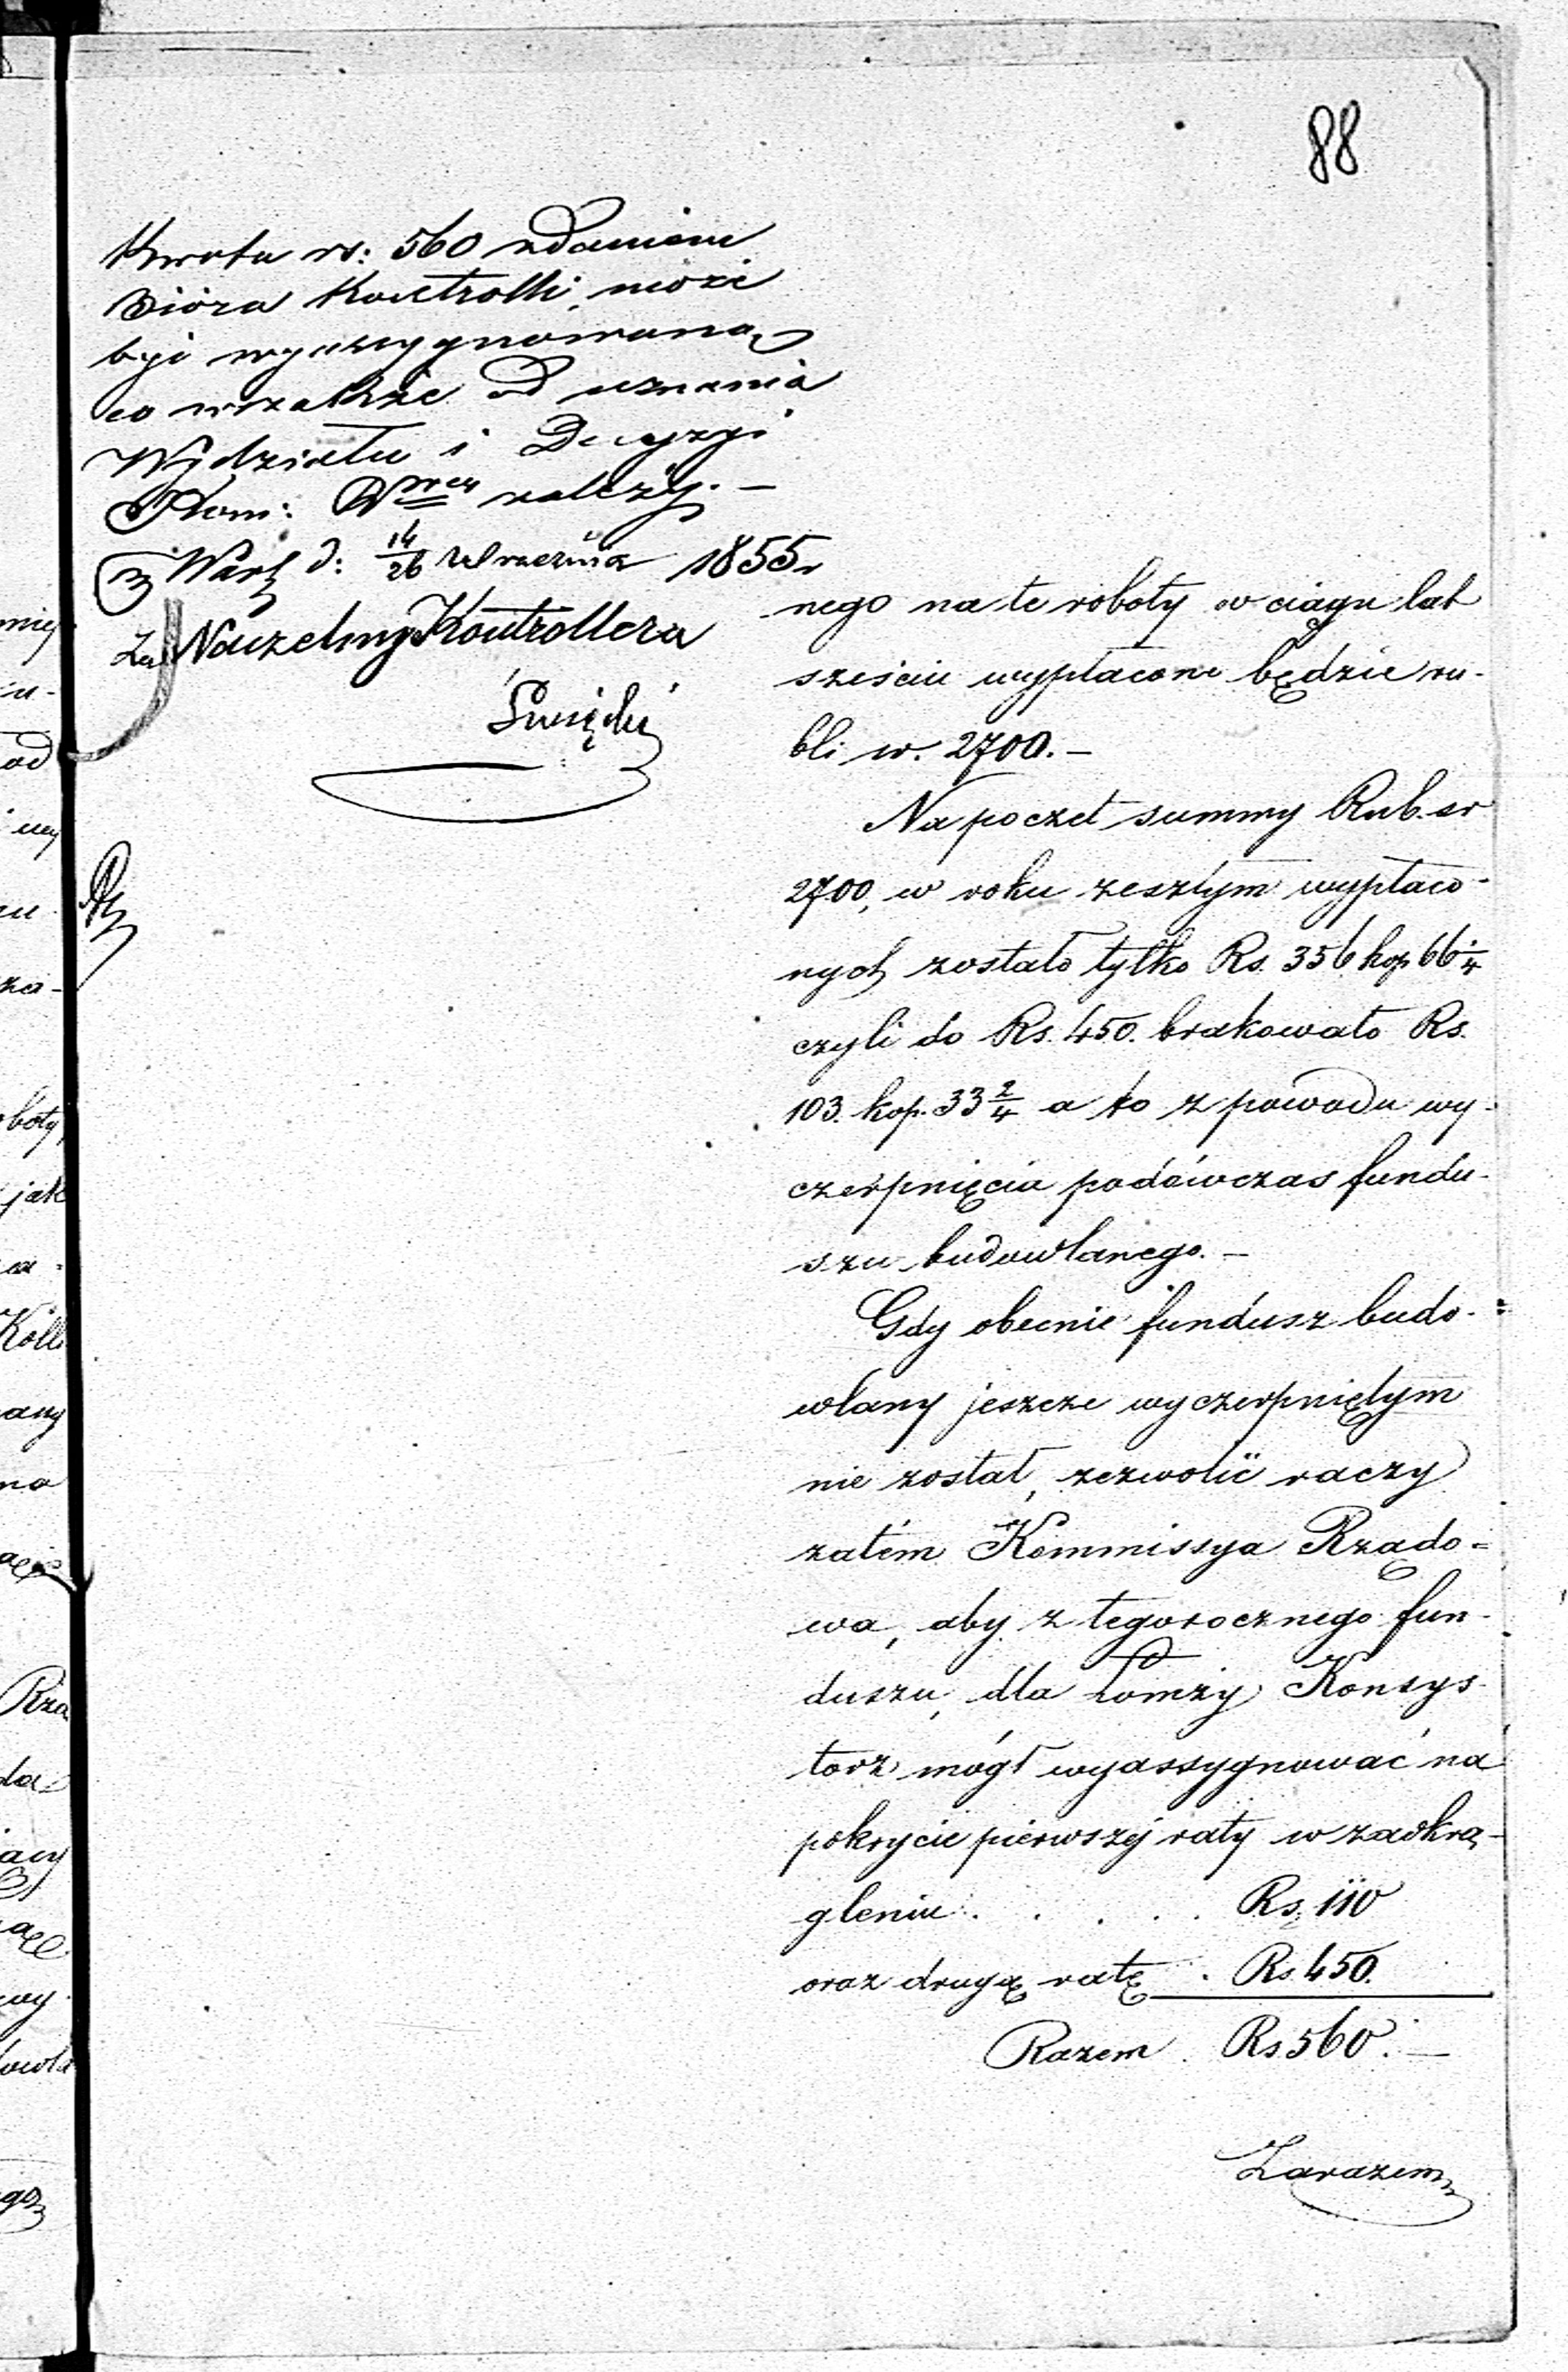 88
Kwota rs: 560 zdaniem
Bióra Kontrolli, może
być wyassygnowaną
co wszakże od uznania
Wydziału i Decyzyi
Kom: należy. —
Warsz d: 14/26 Września 1855 r
Za Naczelnego Kontrollera
Święcki
nego na te roboty w ciągu lat
sześciu wypłacone będzie ru-
bli sr. 2700. —
Na poczet summy Rub. sr
2700, w roku zeszłym wypłaco-
nych zostało tylko Rs. 356 kop 66 2/4
czyli do Rs. 450. brakowało Rs.
103. kop. 33 2/4 a to z powodu wy-
czerpnięcia podówczas fundu-
szu budowlanego. —
Gdy obecnie fundusz budo-
wlany jeszcze wyczerpniętym
nie został, zezwolić raczy
zatém Kommissya Rządo=
wa, aby z tegorocznego fun-
duszu, dla Łomży Konsys-
torz mógł wyassygnować na
pokrycie pierwszéj raty w zaokrą-
gleniu . . . . . Rs. 110
oraz drugą ratę . Rs 450.
Razem . Rs 560. —
Zarazem